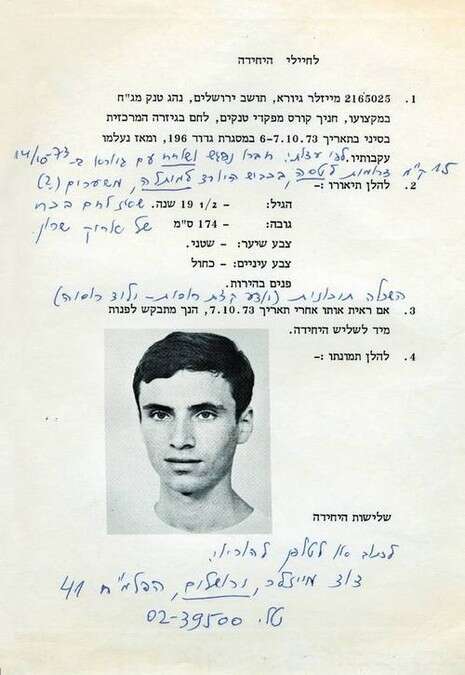 לחיילי היחידה
1. 2165025 מייזלר גיורא, תושב ירושלים, נהג טנק מג"ח
במקצועו, חניך קורס מפקדי טנקים, לחם בגיזרה המרכזית
בסיני בתאריך 6-7.10.73 במסגרת גדוד 196, ומאז נעלמו
עקבותיו. לפי עדותי: חברו נפגש ושוחח עם גיורא ב- 14/10/73
15 ק"מ דרומית לטסה, בכביש היורד למותלה, משערים (?)
2. להלן תיאורו :-
הגיל: - 19 1/2 שנה. שאז לחם בכח
גובה: - 174 ס"מ של אריק שרון.
צבע שיער: - שטני.
צבע עיניים: - כחול
פנים בהירות.
השכלה תיכונית
3. אם ראית אותו אחרי תאריך 7.10.73, הנך מתבקש לפנות
מיד לשליש היחידה.
4. להלן תמונתו :-
שלישות היחידה
לכתוב או לטלפן להוריו:
מייזלר, ירושלים, הפלמ"ח 41
טל. 02-39500